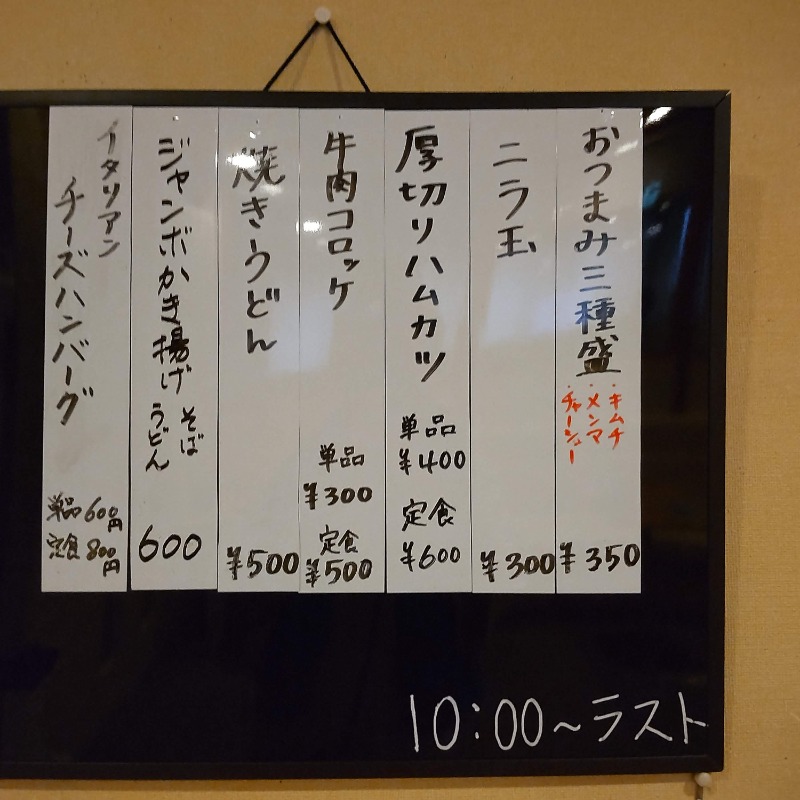 おつまみ三種盛
・キムチ
・メンマ
・チャーシュー
¥350
ニラ玉
¥300
厚切りハムカツ
単品
¥400
定食
¥600
牛肉コロッケ
単品
¥300
定食
¥500
焼きうどん
¥500
ジャンボかき揚げ
そば
うどん
600
イタリアン
チーズハンバーグ
単品600円
定食800円
10:00〜ラスト